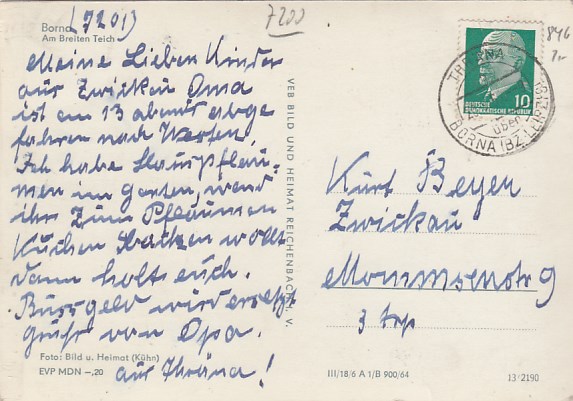 (7201)
7200
Borna
Am Breiten Teich
Meine Lieben Kinder
aus Zwickau Oma
ist am 13 abends abge
fahren nach Westen.
Ich habe Hauspflau-
men im Garten, wend
ihr zum Pflaumen
Kuchen Backen wollt
dann holt euch.
Bussgeld wird ersetzt
grüße von Opa.
aus Thräna!
Foto: Bild u. Heimat (Kühn)
EVP MDN –,20
VEB BILD UND HEIMAT REICHENBACH I. V.
846
7.-
TREBNA
über
BORNA (BZ. LEIPZIG)
10
DEUTSCHE
DEMOKRATISCHE REPUBLIK
Kurt Beyer
Zwickau
Mommsenstr 9
3 trp
III/18/6 A 1/B 900/64
13/2190